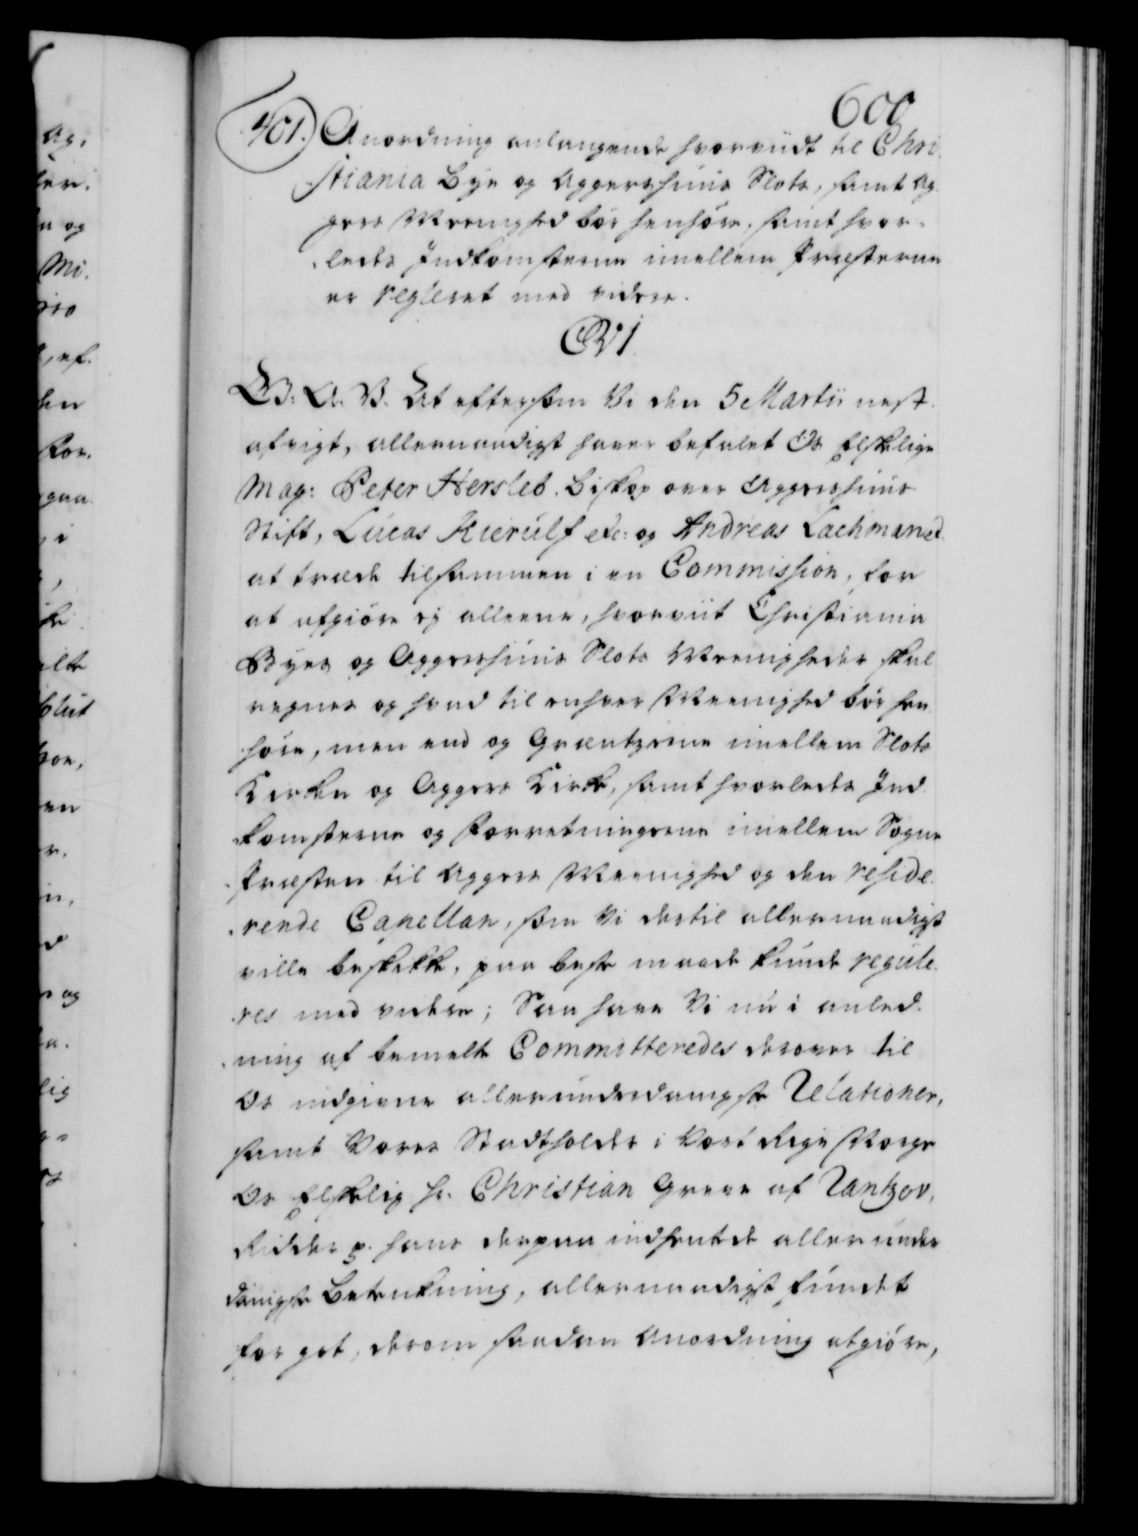 600
401. Anordning anlangende hvorviidt til Chri-
stiania Bye og Aggershuus Slots, samt Ag-
gers Meenighed bør henhøre, samt hvor-
ledes Indkomsterne imellem Præsterne
er regleret med videre.
CVI.
G. A. V. At eftersom Vi den 5 Martii nest-
afvigt, allernaadigst haver befalet Os Elskelige
Mag: Peter Hersleb, Biskop over Aggershuus
Stift, Lucas Kierulf etc: og Andreas Lachmand
at træde tilsammen i en Commission, for
at afgiøre ej alleene, hvorviit Christiania
Byes og Aggershuus Slots Meenigheder skal
regnes og hvad til enhver Meenighed bør hen-
høre, men end og Grentzerne imellem Slots
Kirken og Aggers Kirke, samt hvorledes Ind-
komsterne og Forretningerne imellem Sogne
Præsten til Aggers Meenighed og den reside-
rende Capellan, som Vi dertil allernaadigst
ville beskikke, paa beste maade kunde regule-
res med videre; Saa have Vi nu i anled-
ning af bemelte Committeredes derover til
Os indgivne allerunderdanigste Relationer,
samt Vores Stadtholder i Vort Rige Norge
Os Elskelig Hr. Christian Greve af Rantzov,
Ridder p. hans derpaa indhentede allerunder
danigste Betænkning, allernaadigst fundet
for got, derom saadan Anordning atgiøre,